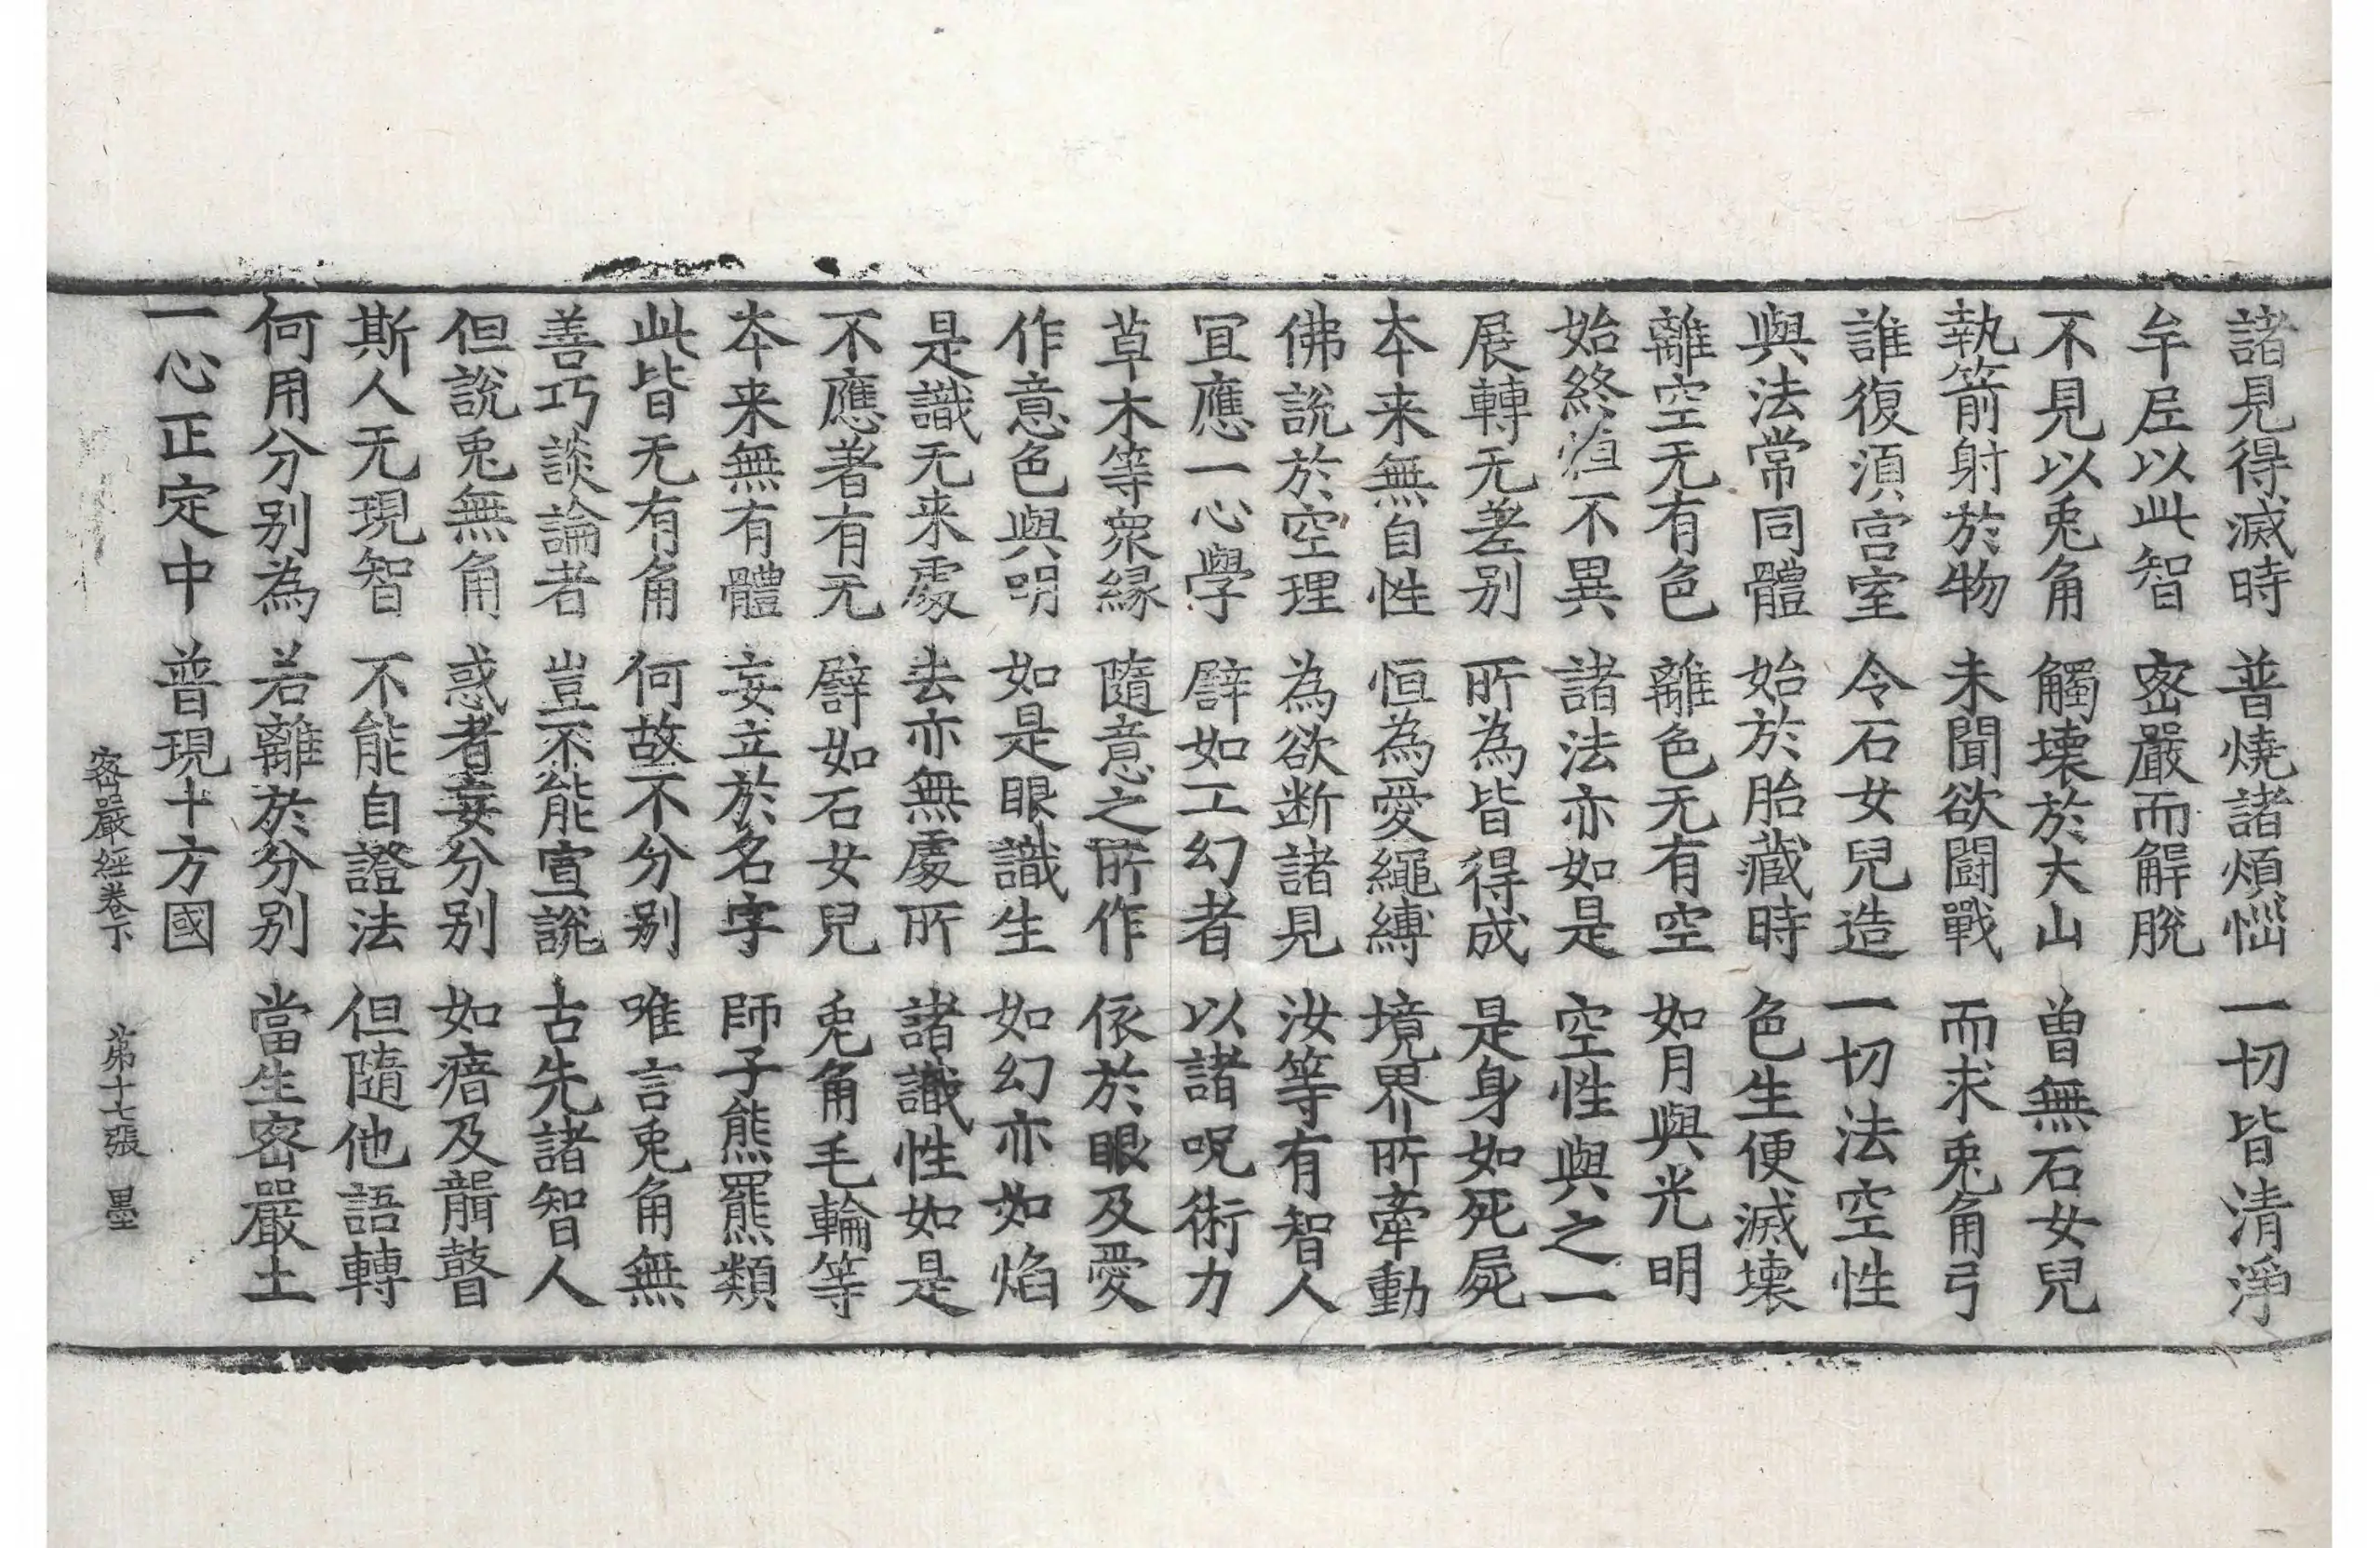 諸見得滅時　普燒諸煩惱　一切皆清淨
牟𡰱以此智　密嚴而解脫
不見以兎角　觸壞於大山　曾無石女兒
執箭射於物　未聞欲鬪戰　而求兎角弓
誰復須宮室　令石女兒造　一切法空性
與法常同體　始於胎藏時　色生便滅壞
離空无有色　離色无有空　如月與光明
始終恒不異　諸法亦如是　空性與之一
展轉无差別　所為皆得成　是身如死屍
本来無自性　恒為愛繩縛　境界所牽動
佛說於空理　為欲断諸見　汝等有智人
冝應一心學　譬如工幻者　以諸呪術力
草木等衆縁　隨意之所作　依於眼及愛
作意色與明　如是眼識生　如幻亦如焰
是識无来處　去亦無處所　諸識性如是
不應著有无　譬如石女兒　兎角毛輪等
本来無有體　妄立於名字　師子熊羆類
此皆无有角　何故不分別　唯言兎角無
善巧談論者　豈不能宣說　古先諸智人
但說兎無角　惑者妄分別　如瘖及聾瞽
斯人无現智　不能自證法　但隨他語轉
何用分別為　若離於分別　當生密嚴土
一心正定中　普現十方國
密嚴經卷下　第十七張　墨